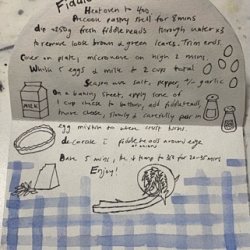 Fiddle
Heaten to 400
Precook pastry shell for 8 mins
dip 250g fresh fiddleheads through water x3
to remove loose brown & green leaves. Trim ends.
Cover on plate, microwave on high 2 mins
Whisk 5 eggs & milk to 2 cups total
Season with salt, pepper, garlic
On a baking sheet, apply some of
cheese to bottom, add fiddleheads,
more cheese, slowly & carefully pour in
egg mixture to where crust turns.
decorate fiddleheads around edge
Bake 5 mins, temp to 350 for 20-35 mins
Enjoy!
MILK